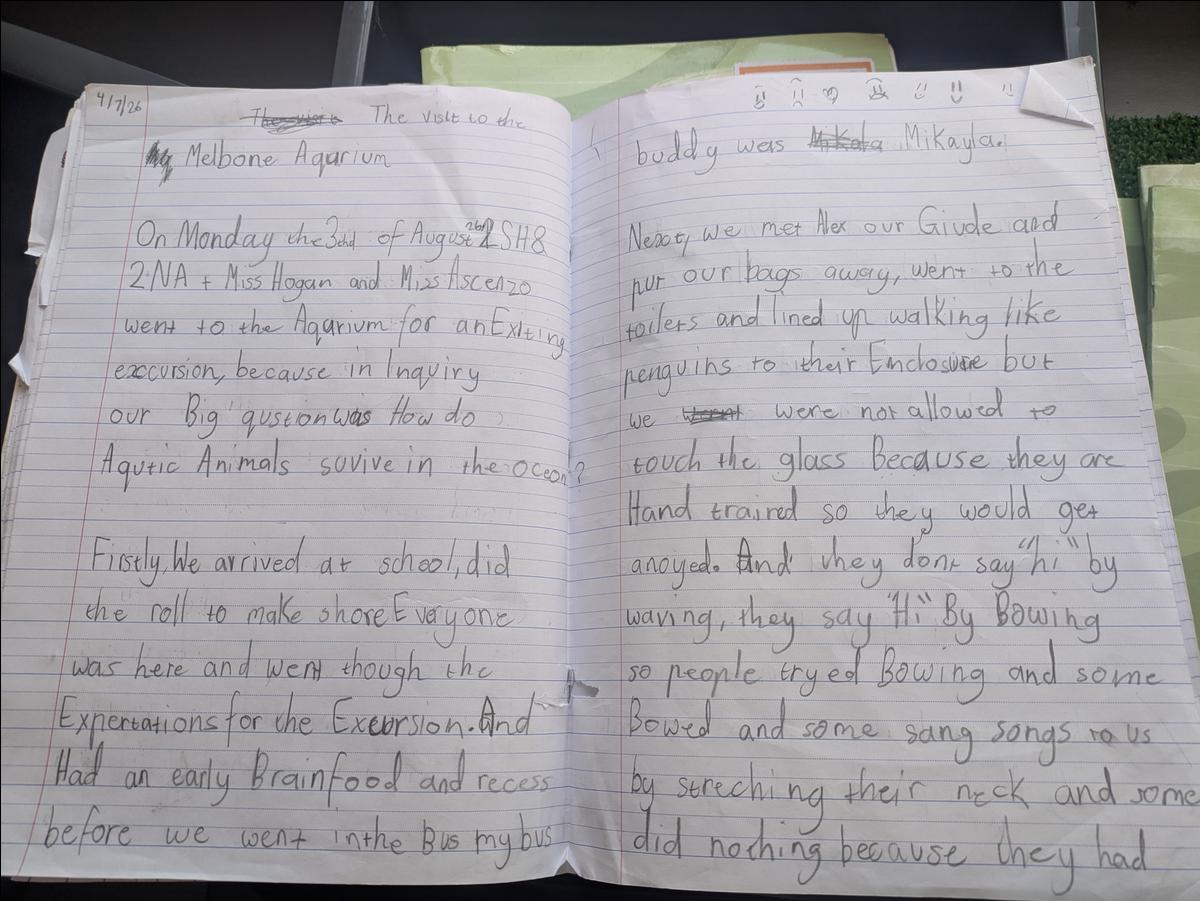 4/7/26
The visit to the
Melbone Aqarium
On Monday the 3rd of August 26 2SH8
2NA + Miss Hogan and Miss Ascenzo
went to the Aqarium for an Exiting
exccursion, because in Inquiry
our Big qustion was How do
Aqutic Animals suvive in the ocean?
Firstly, We arrived at school, did
the roll to make shore Everyone
was here and went though the
Expertations for the Excursion. And
Had an early Brain Food and recess
before we went in the Bus my bus
buddy was Mikayla.
Next, we met Alex our Giude and
put our bags away, went to the
toilets and lined up walking like
penguins to their Enclosure but
we were not allowed to
touch the glass Because they are
Hand trained so they would get
anoyed. And they dont say "hi" by
waving, they say "Hi" By Bowing
so people tryed Bowing and some
Bowed and some sang songs to us
by streching their neck and some
did nothing because they had